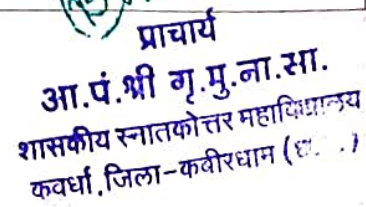 प्राचार्य
आ.पं.श्री गृ.मु.ना.सा.
शासकीय स्नातकोत्तर महाविद्यालय
कवर्धा,जिला-कबीरधाम (छ. .)